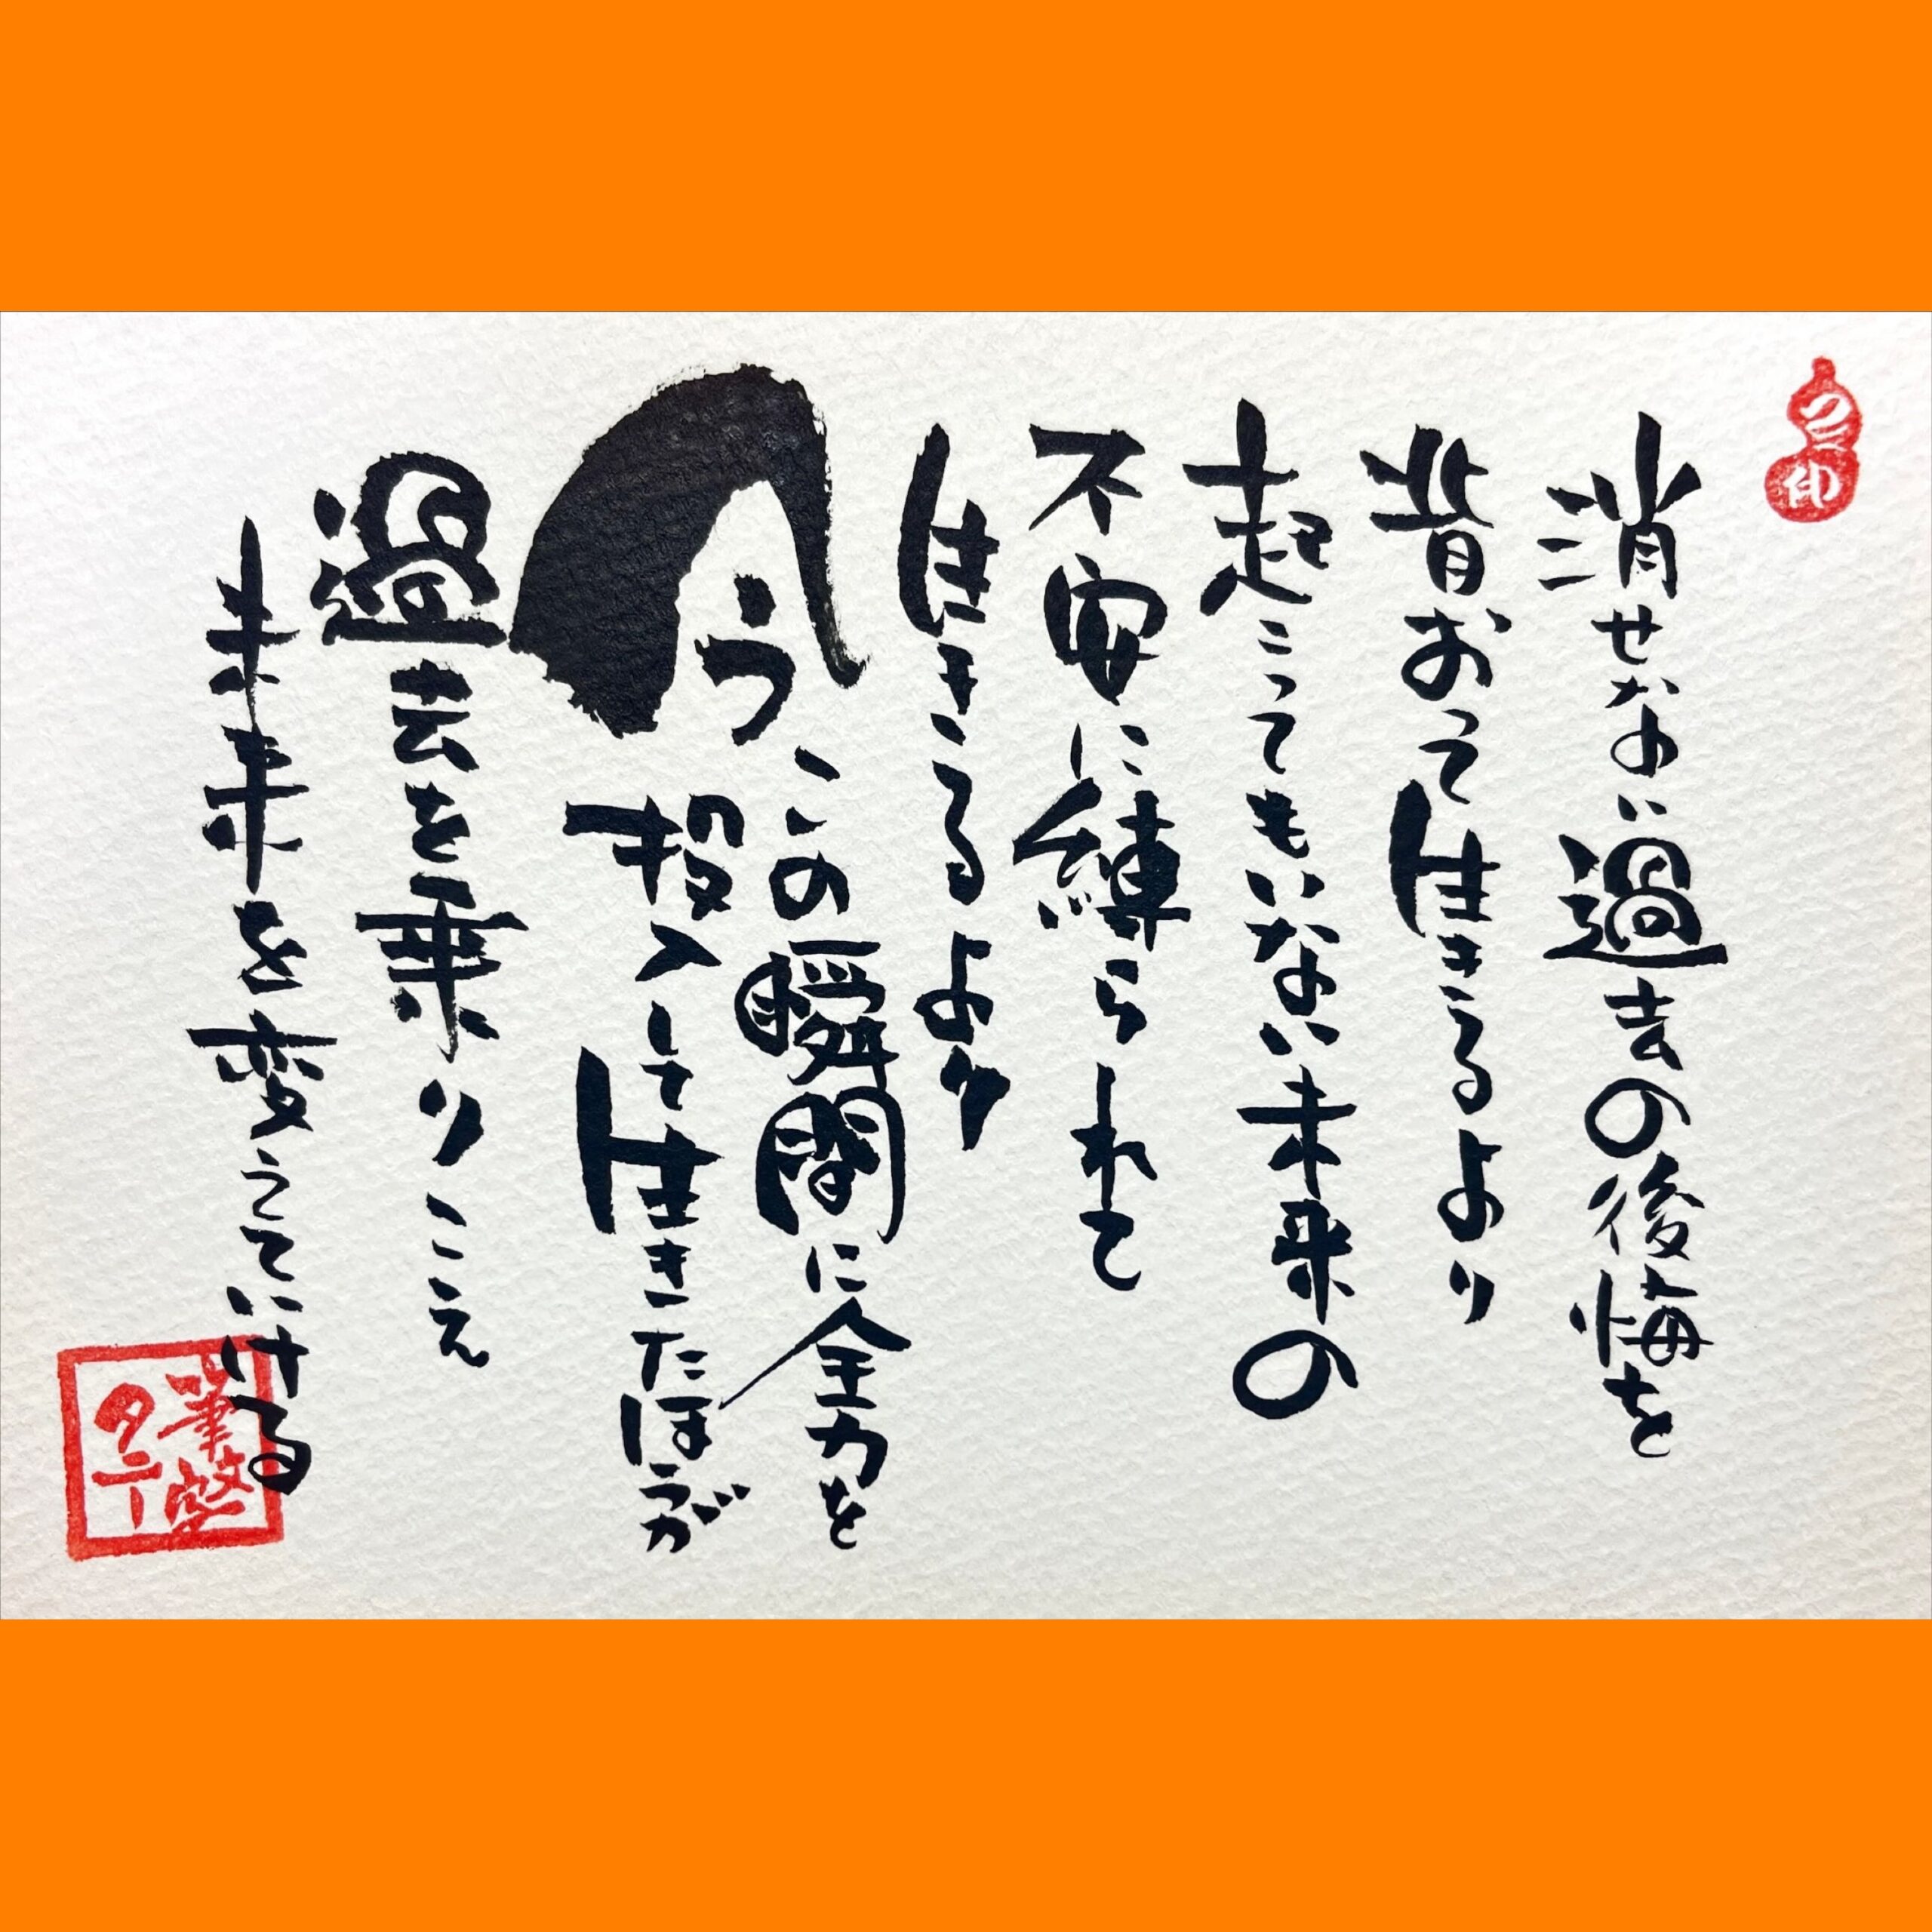 消せない過去の後悔を
背おって生きるより
起こってもいない未来の
不安に縛られて
生きるより
今この瞬間に全力を
投入して生きたほうが
過去を乗りこえ
未来を変えていける
筆文字
タニー